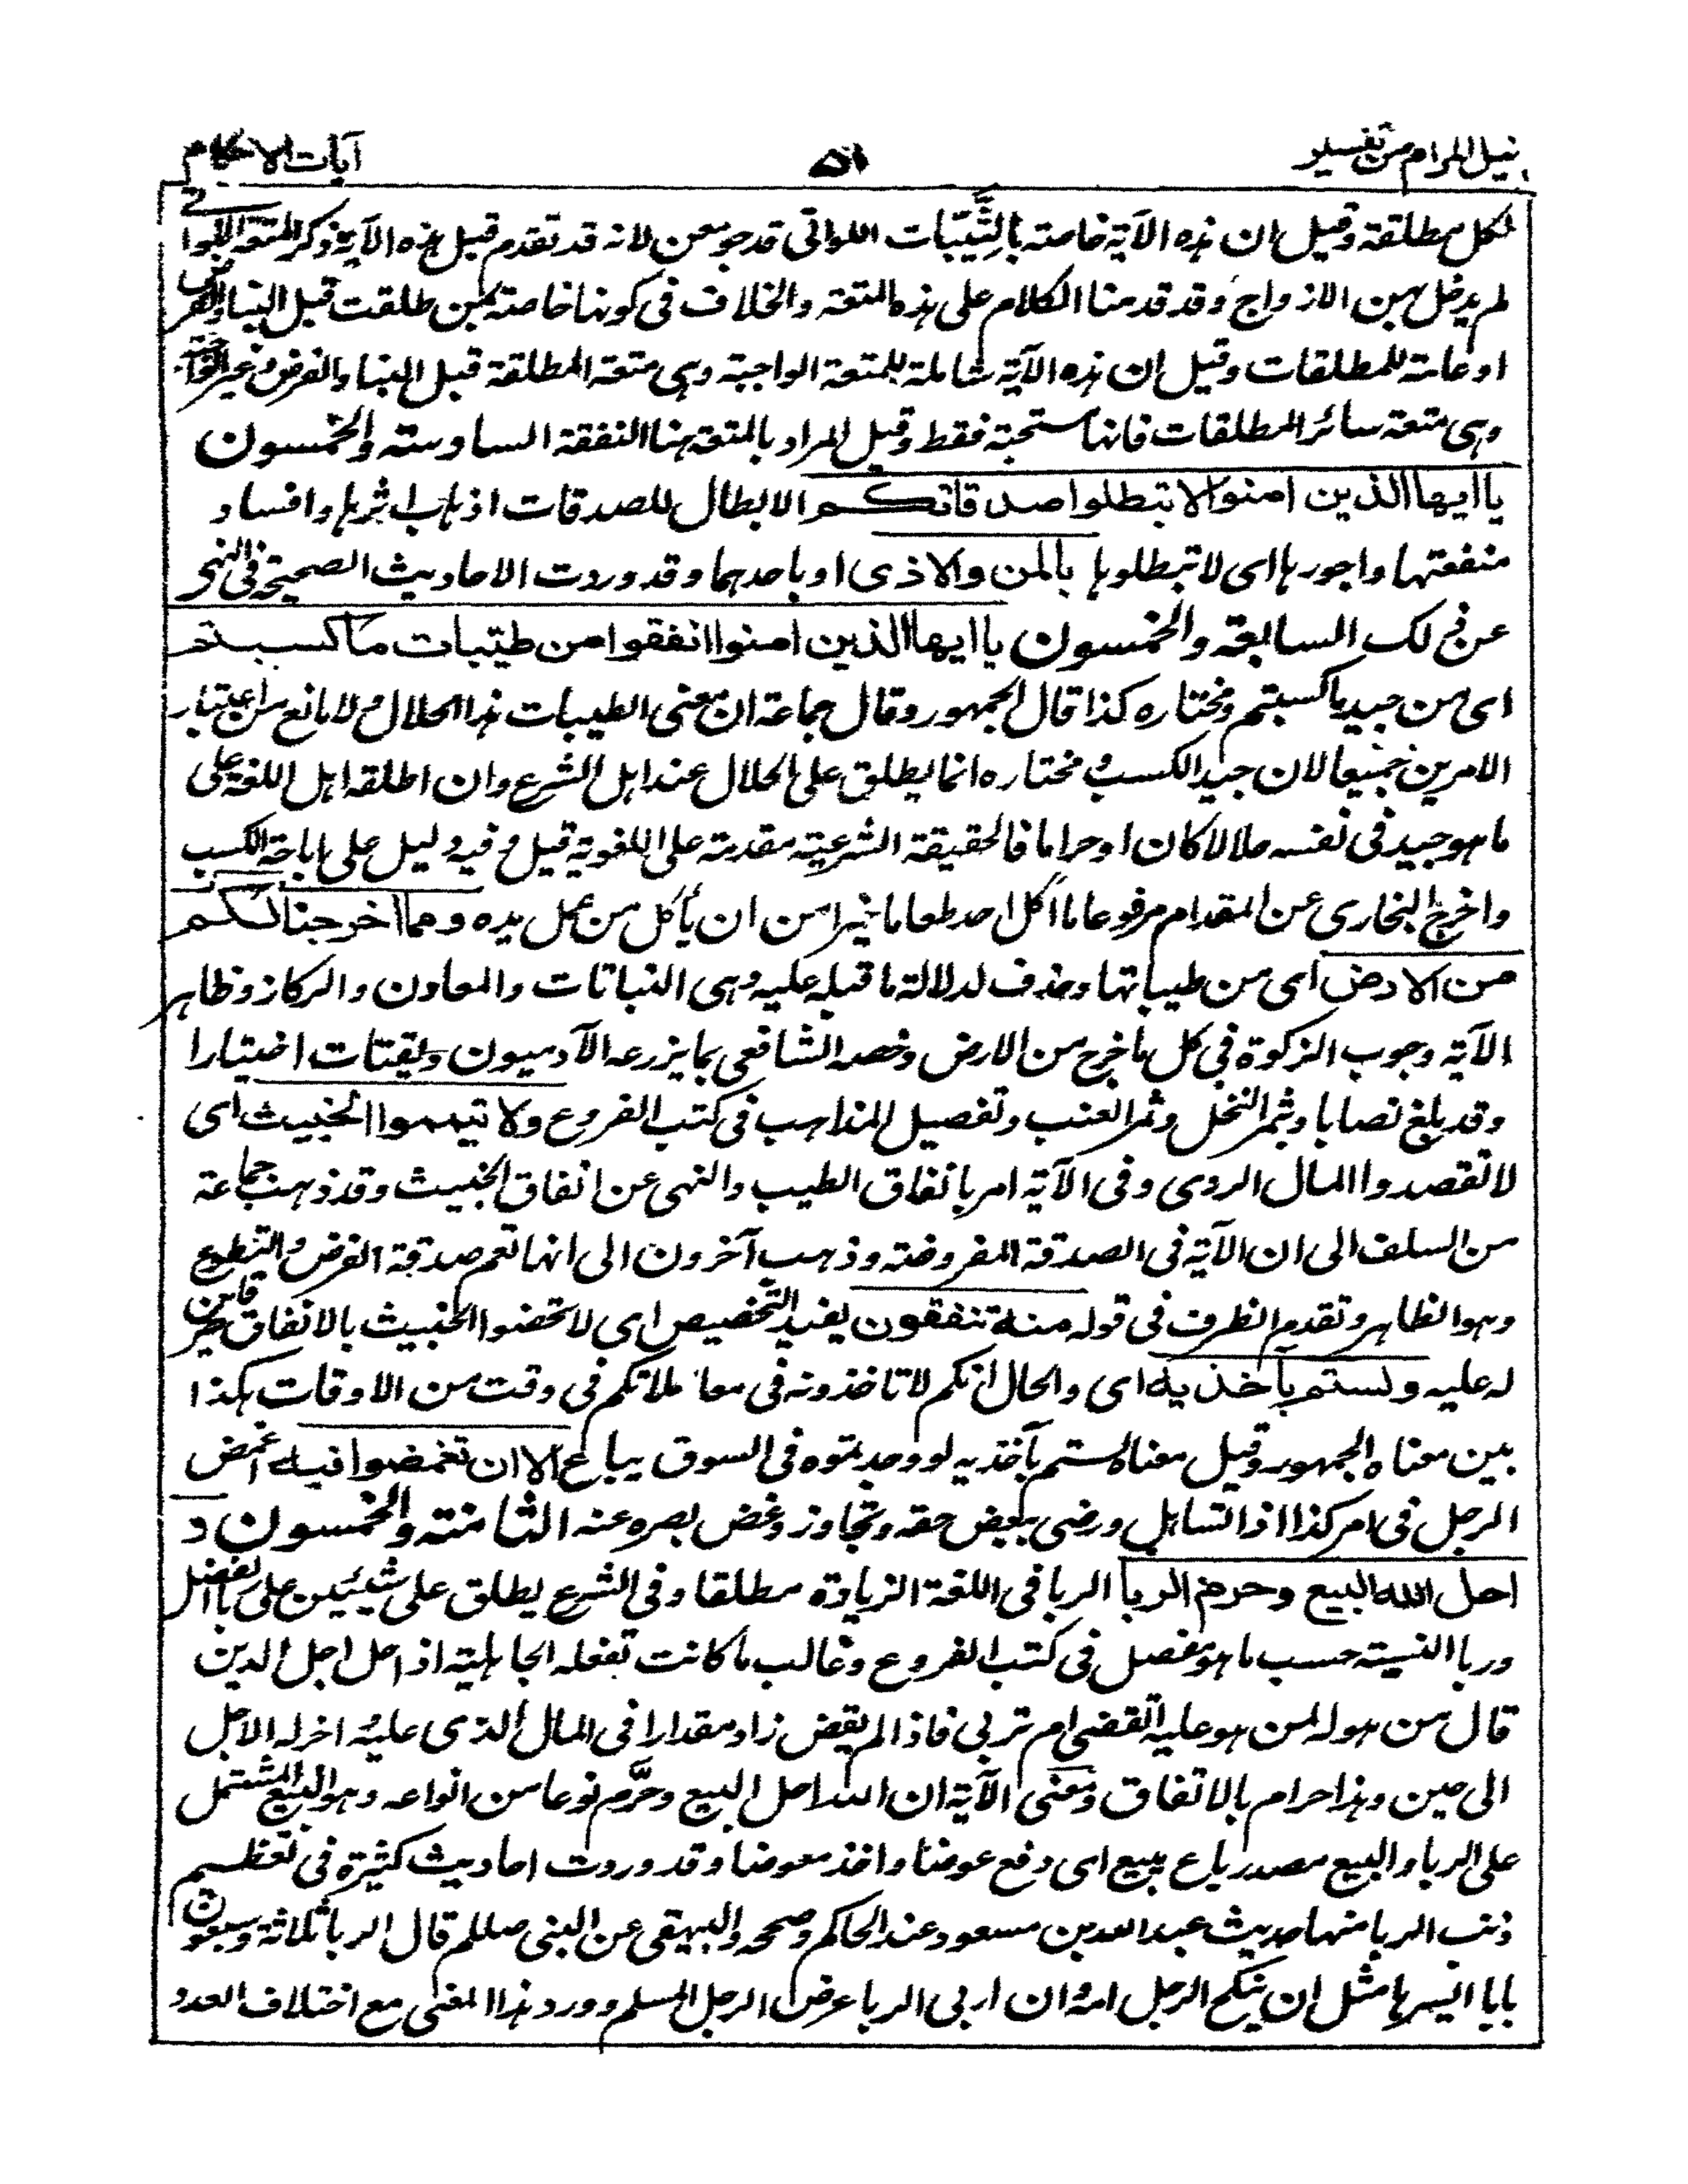 نيل المرام من تفسير ٥١ آيات الاحكام
لكل مطلقة وقيل ان هذه الآية خاصة بالثَّيِّبات اللواتي قد جومعن لانه قد تقدم قبل هذه الآية ذكر المتعة للواتي
لم يدخل بهن الازواج وقد قدمنا الكلام على هذه المتعة والخلاف في كونها خاصة بمن طلقت قبل البناء والفرض
او عامة للمطلقات وقيل ان هذه الآية شاملة للمتعة الواجبة وهى متعة المطلقة قبل البناء والفرض وغير الواجبة
وهى متعة سائر المطلقات فانها مستحبة فقط وقيل المراد بالمتعة هنا النفقة السادسة والخمسون
يا ايها الذين امنوا لا تبطلوا صدقاتكم الابطال للصدقات اذهاب اثرها وافساد
منفعتها واجورها اى لا تبطلوها بالمن والاذى او باحدهما وقد وردت الاحاديث الصحيحة فى النهى
عن ذلك السابعة والخمسون يا ايها الذين امنوا انفقوا من طيّبات ما كسبتم
اى من جيد ما كسبتم ومختاره كذا قال الجمهور وقال جماعة ان معنى الطيبات هذا الحلال ولا مانع من اعتبار
الامرين جميعا لان جيد الكسب ومختاره انما يطلق على الحلال عند اهل الشرع وان اطلقه اهل اللغة على
ما هو جيد فى نفسه حلالا كان او حراما فالحقيقة الشرعية مقدمة على اللغوية قيل وفيه دليل على اباحة الكسب
واخرج البخارى عن المقدام مرفوعا ما اكل احد طعاما خيرا من ان يأكل من عمل يده ومما اخرجنا لكم
من الارض اى من طيباتها وحذف لدلالة ما قبله عليه وهى النباتات والمعادن والركاز وظاهر
الآية وجوب الزكوة فى كل ما خرج من الارض وخصه الشافعى بما يزرعه الآدميون ويقتات اختيارا
وقد بلغ نصابا وثمر النخل وثمر العنب وتفصيل المذاهب فى كتب الفروع ولا تيمموا الخبيث اى
لا تقصدوا المال الردى وفى الآية امر بانفاق الطيب والنهى عن انفاق الخبيث وقد ذهب جماعة
من السلف الى ان الآية فى الصدقة المفروضة وذهب آخرون الى انها تعم صدقة الفرض والتطوع
وهو الظاهر وتقديم الظرف فى قوله منه تنفقون يفيد التخصيص اى لا تخصوا الخبيث بالانفاق قاصرين
له عليه ولستم بآخذيه اى والحال انكم لا تاخذونه فى معاملاتكم فى وقت من الاوقات هكذا
بين معناه الجمهور وقيل معناه لستم بآخذيه لو وجدتموه فى السوق يباع الا ان تغمضوا فيه اغمض
الرجل فى امر كذا اذا تساهل ورضى ببعض حقه وتجاوز وغض بصره عنه الثامنة والخمسون و
احل الله البيع وحرم الربا الربا فى اللغة الزيادة مطلقا وفى الشرع يطلق على شيئين على ربا الفضل
وربا النسيئة حسب ما هو مفصل فى كتب الفروع وغالب ما كانت تفعله الجاهلية اذا حل اجل الدين
قال من هو له لمن هو عليه اتقضى ام تربى فاذا لم يقض زاد مقدارا فى المال الذى عليه واخر له الاجل
الى حين وهذا حرام بالاتفاق ومعنى الآية ان الله احل البيع وحرَّم نوعا من انواعه وهو البيع المشتمل
على الربا والبيع مصدر باع يبيع اى دفع عوضا واخذ معوضا وقد وردت احاديث كثيرة فى تعظيم
ذنب الربا منها حديث عبد الله بن مسعود عند الحاكم وصححه والبيهقى عن النبى صللم قال الربا ثلاثة وسبعون
بابا ايسرها مثل ان ينكح الرجل امه وان اربى الربا عرض الرجل المسلم وورد هذا المعنى مع اختلاف العدد